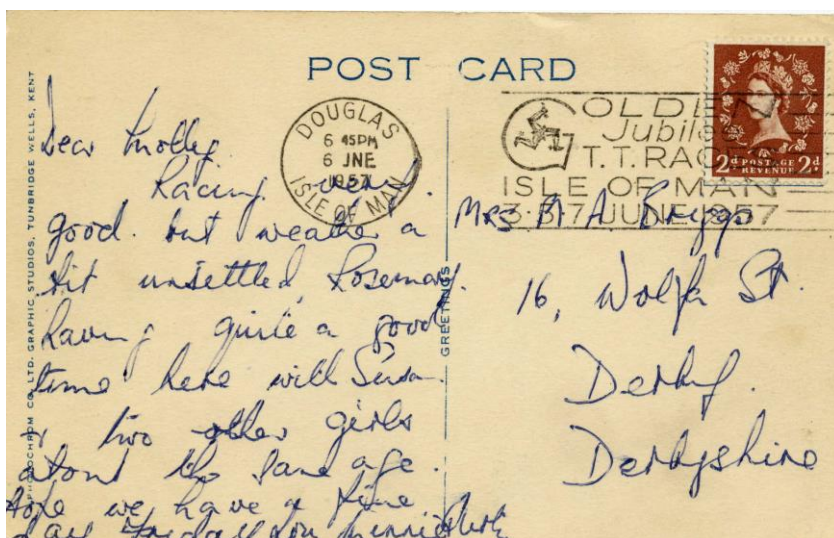 POST CARD
PHOTOCHROM CO. LTD. GRAPHIC STUDIOS, TUNBRIDGE WELLS, KENT
GREETINGS
DOUGLAS
6 45PM
6 JNE
1957
ISLE OF MAN
GOLDEN
Jubilee
T.T. RACES
ISLE OF MAN
3·5·7 JUNE 1957
2d POSTAGE 2d
REVENUE
Dear Molly
Racing very
good. but weather a
bit unsettled, Rosemary.
having quite a good
time here with Susan.
& two other girls
about the same age.
Hope we have a fine
day Friday
Mrs M A Briggs
16, Wolfa St.
Derby.
Derbyshire